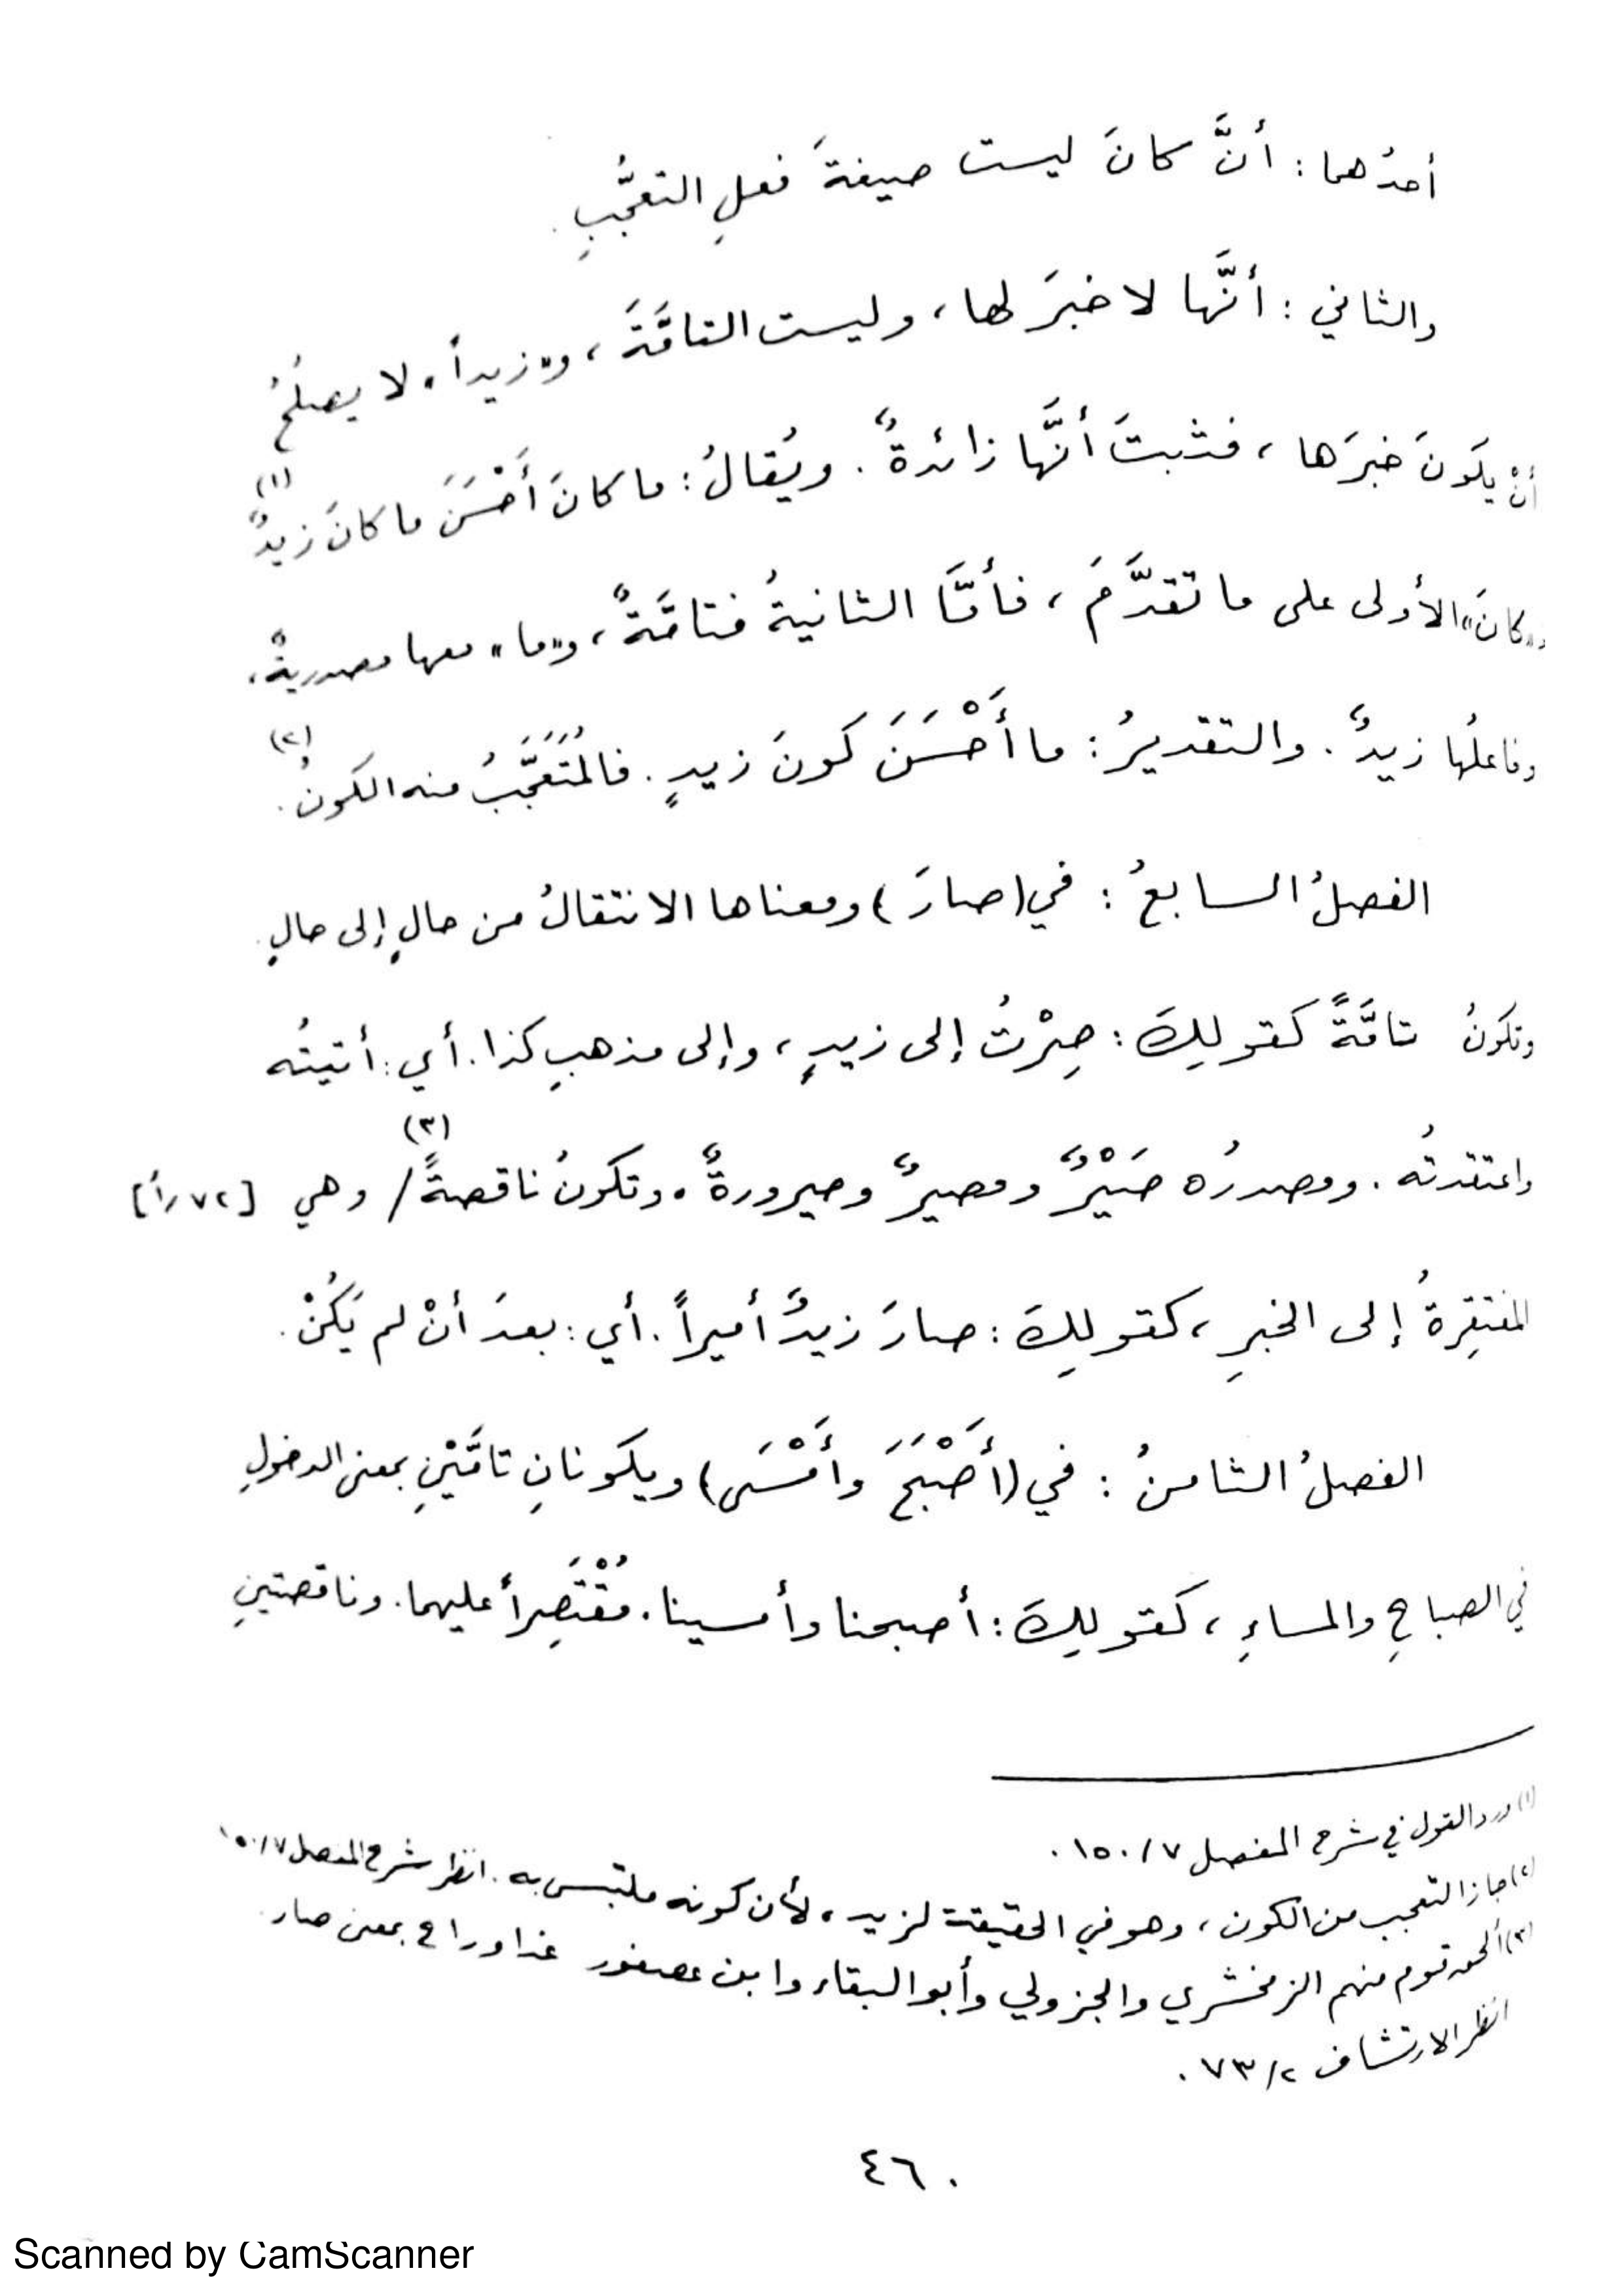 أحدُهما : أنَّ كانَ ليست صيغةَ فعلِ التعجُّبِ .
والثاني : أنَّها لا خبرَ لها ، وليست التامَّةَ ، و«زيداً» لا يصلُحُ
أنْ يكونَ خبرَها ، فثبتَ أنَّها زائدةٌ . ويُقالُ : ما كانَ أَحْسَنَ ما كانَ زيدٌ (١)
و«كانَ» الأولى على ما تقدَّمَ ، فأمَّا الثانيةُ فتامَّةٌ ، و«ما» معها مصدريةٌ ،
وفاعلُها زيدٌ . والتقديرُ : ما أَحْسَنَ كونَ زيدٍ . فالمُتَعَجَّبُ منه الكونُ (٢) .
الفصلُ السابعُ : في (صارَ) ومعناها الانتقالُ من حالٍ إلى حالٍ .
وتكونُ تامَّةً كقولِكَ : صِرْتُ إلى زيدٍ ، وإلى مذهبِ كذا . أي : أتيتُه
واعتقدتُه . ومصدرُه صَيْرٌ ومصيرٌ وصيرورةٌ . وتكونُ ناقصةً (٣) / وهي [٧٢/أ]
المفتقِرةُ إلى الخبرِ ، كقولِكَ : صارَ زيدٌ أميراً . أي : بعدَ أنْ لم يَكُنْ .
الفصلُ الثامنُ : في (أَصْبَحَ وأَمْسَى) ويكونانِ تامَّيْنِ بمعنى الدخولِ
في الصباحِ والمساءِ ، كقولِكَ : أصبحنا وأمسينا . مُقْتَصِراً عليهما . وناقصتينِ
(١) ورد القول في شرح المفصل ٧/ ١٥٠ .
(٢) جاز التعجب من الكون ، وهو في الحقيقة لزيد ، لأن كونه ملتبس به . انظر شرح المفصل ٧/ ١٥٠
(٣) ألحق قوم منهم الزمخشري والجزولي وأبو البقاء وابن عصفور غدا وراح بمعنى صار .
انظر الارتشاف ٢/ ٧٣ .
٤٦٠
Scanned by CamScanner